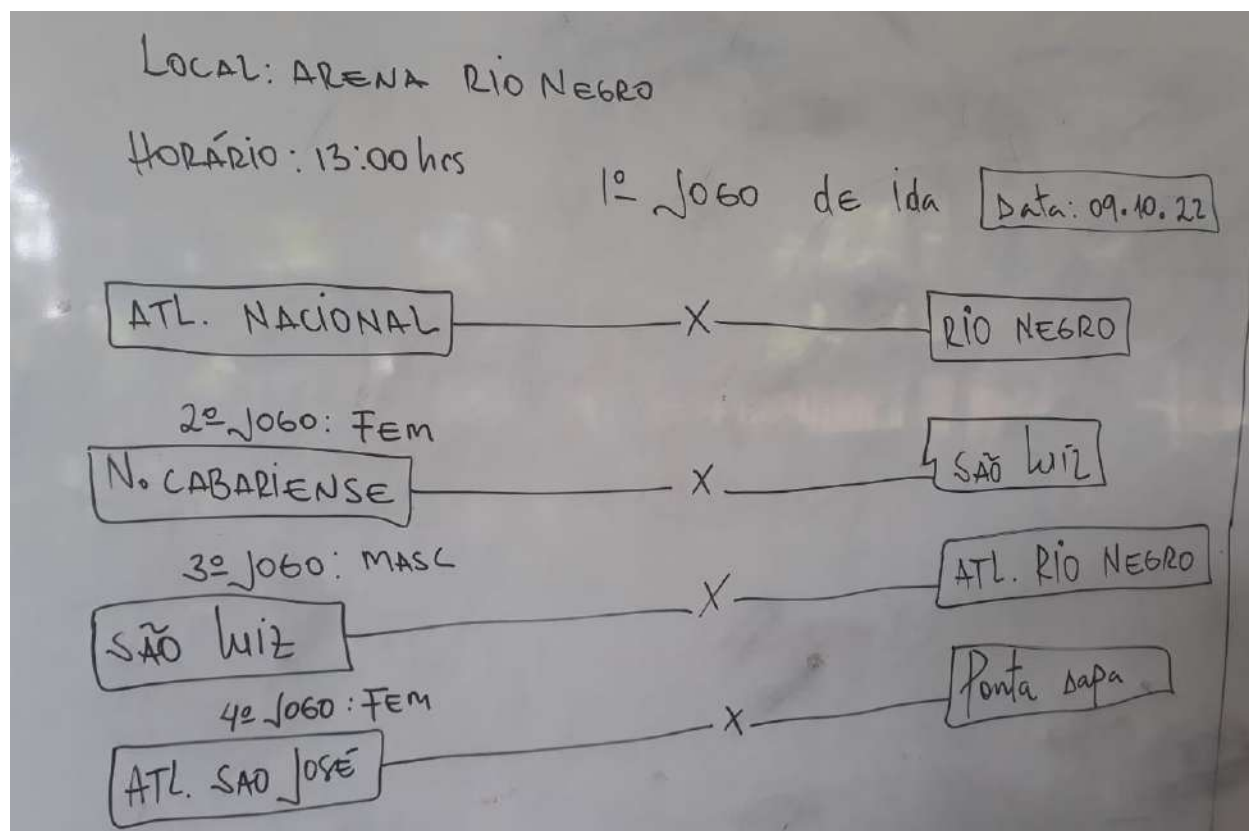 LOCAL: ARENA RIO NEGRO
HORÁRIO: 13:00 hrs
1º JOGO de ida Data: 09.10.22
ATL. NACIONAL X RIO NEGRO
2º JOGO: FEM
N. CABARIENSE X SÃO LUIZ
3º JOGO: MASC
SÃO LUIZ X ATL. RIO NEGRO
4º JOGO: FEM
ATL. SAO JOSÉ X Ponta dapa